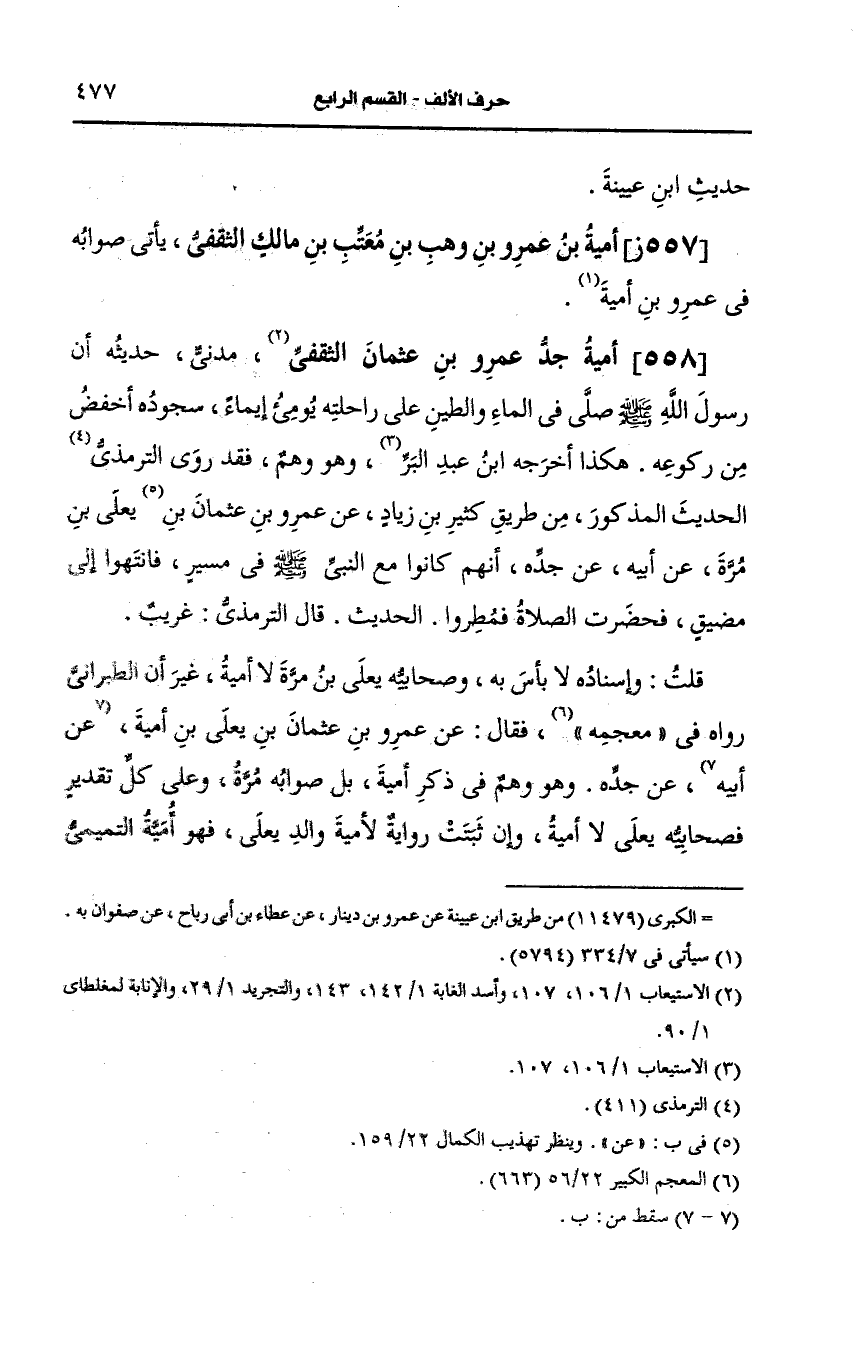 حرف الألف - القسم الرابع ٤٧٧
حديثِ ابنِ عيينةَ .
[٥٥٧ز] أميةُ بنُ عمرِو بنِ وهبِ بنِ مُعَتِّبِ بنِ مالكٍ الثقفيُّ ، يأتى صوابُه
فى عمرِو بنِ أميةَ(١) .
[٥٥٨] أميةُ جدُّ عمرِو بنِ عثمانَ الثقفيِّ(٢) ، مدنيٌّ ، حديثُه أن
رسولَ اللَّهِ ﷺ صلَّى فى الماءِ والطينِ على راحلتِه يُومِئُ إيماءً ، سجودُه أخفضُ
مِن ركوعِه . هكذا أخرَجه ابنُ عبدِ البَرِّ(٣) ، وهو وهمٌ ، فقد روَى الترمذىُّ(٤)
الحديثَ المذكورَ ، مِن طريقِ كثيرِ بنِ زيادٍ ، عن عمرِو بنِ عثمانَ بنِ(٥) يعلَى بنِ
مُرَّةَ ، عن أبيه ، عن جدِّه ، أنهم كانوا مع النبىِّ ﷺ فى مسيرٍ ، فانتَهوا إلى
مضيقٍ ، فحضَرت الصلاةُ فمُطِروا . الحديث . قال الترمذىُّ : غريبٌ .
قلتُ : وإسنادُه لا بأسَ به ، وصحابيُّه يعلَى بنُ مرَّةَ لا أميةُ ، غيرَ أن الطبرانىَّ
رواه فى « معجمِه »(٦) ، فقال : عن عمرِو بنِ عثمانَ بنِ يعلَى بنِ أميةَ ، (٧عن
أبيه٧) ، عن جدِّه . وهو وهمٌ فى ذكرِ أميةَ ، بل صوابُه مُرَّةُ ، وعلى كلِّ تقديرٍ
فصحابِيُّه يعلَى لا أميةُ ، وإن ثَبَتَتْ روايةٌ لأميةَ والدِ يعلَى ، فهو أُمَيَّةُ التميمىُّ
= الكبرى (١١٤٧٩) من طريق ابن عيينة عن عمرو بن دينار ، عن عطاء بن أبى رباح ، عن صفوان به .
(١) سيأتى فى ٣٣٤/٧ (٥٧٩٤) .
(٢) الاستيعاب ١/ ١٠٦، ١٠٧، وأسد الغابة ١/ ١٤٢، ١٤٣، والتجريد ١/ ٢٩، والإنابة لمغلطاى
١/ ٩٠.
(٣) الاستيعاب ١/ ١٠٦، ١٠٧.
(٤) الترمذى (٤١١) .
(٥) فى ب : « عن » . وينظر تهذيب الكمال ٢٢/ ١٥٩.
(٦) المعجم الكبير ٥٦/٢٢ (٦٦٣) .
(٧ - ٧) سقط من : ب .